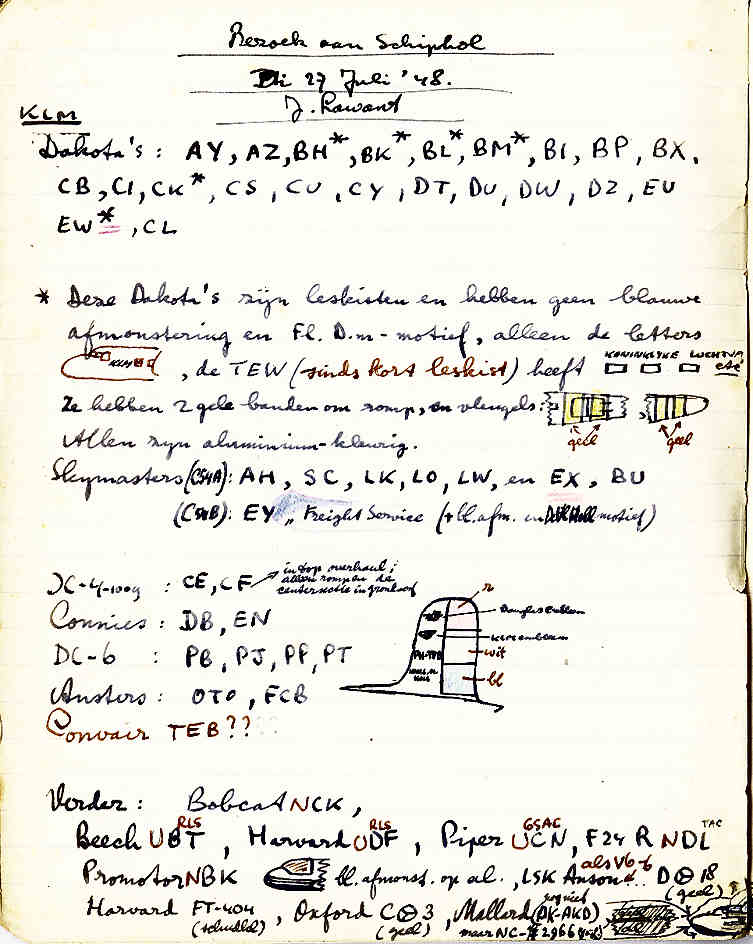 Bezoek aan Schiphol
Di 27 Juli '48.
J. Rawant
KLM
Dakota's : AY, AZ, BH*, BK*, BL*, BM*, BI, BP, BX,
CB, CI, CK*, CS, CU, CY, DT, DU, DW, DZ, EU
EW*, CL
* Deze Dakota's zijn leskisten en hebben geen blauwe
afmonstering en Fl. D.m-motief, alleen de letters
KLM , de TEW (sinds kort leskist) heeft KONINKLYKE LUCHTVA etc
Ze hebben 2 gele banden om romp, en vleugels:
geel geel
Allen zijn aluminium-kleurig.
Skymasters (C54A): AH, SC, LK, LO, LW, en EX, BU
(C54B): EY „ Freight Service (+ bl. afm. en motief)
DC-4-1009 : CE, CF in top overhaul; alleen rompen de centersectie in
Connies : DB, EN
DC-6 : PB, PJ, PP, PT
Austers : OTO, FCB
Convair TEB??
r
Douglas embleem
KLM embleem
wit
bl
PH-TPB
Verder : Bobcat NCK,
Beech UBT RLS, Harvard UDF RLS, Piper UCN GSAC, F24 R NDL TAC
Promotor NBK bl. afmonst. op al., LSK Anson als V6-6 D 18 (geel)
Harvard FT-404 (schudblad), Oxford C 3 (geel), Mallard (PK-AKD)
maar NC-